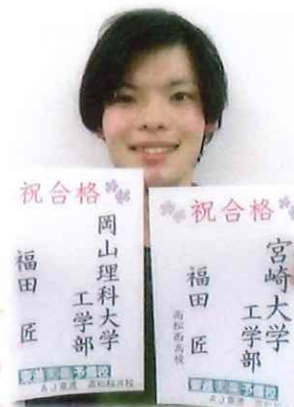 祝合格
岡山理科大学
工学部
福田 匠
祝合格
宮崎大学
工学部
福田 匠
高松西高校